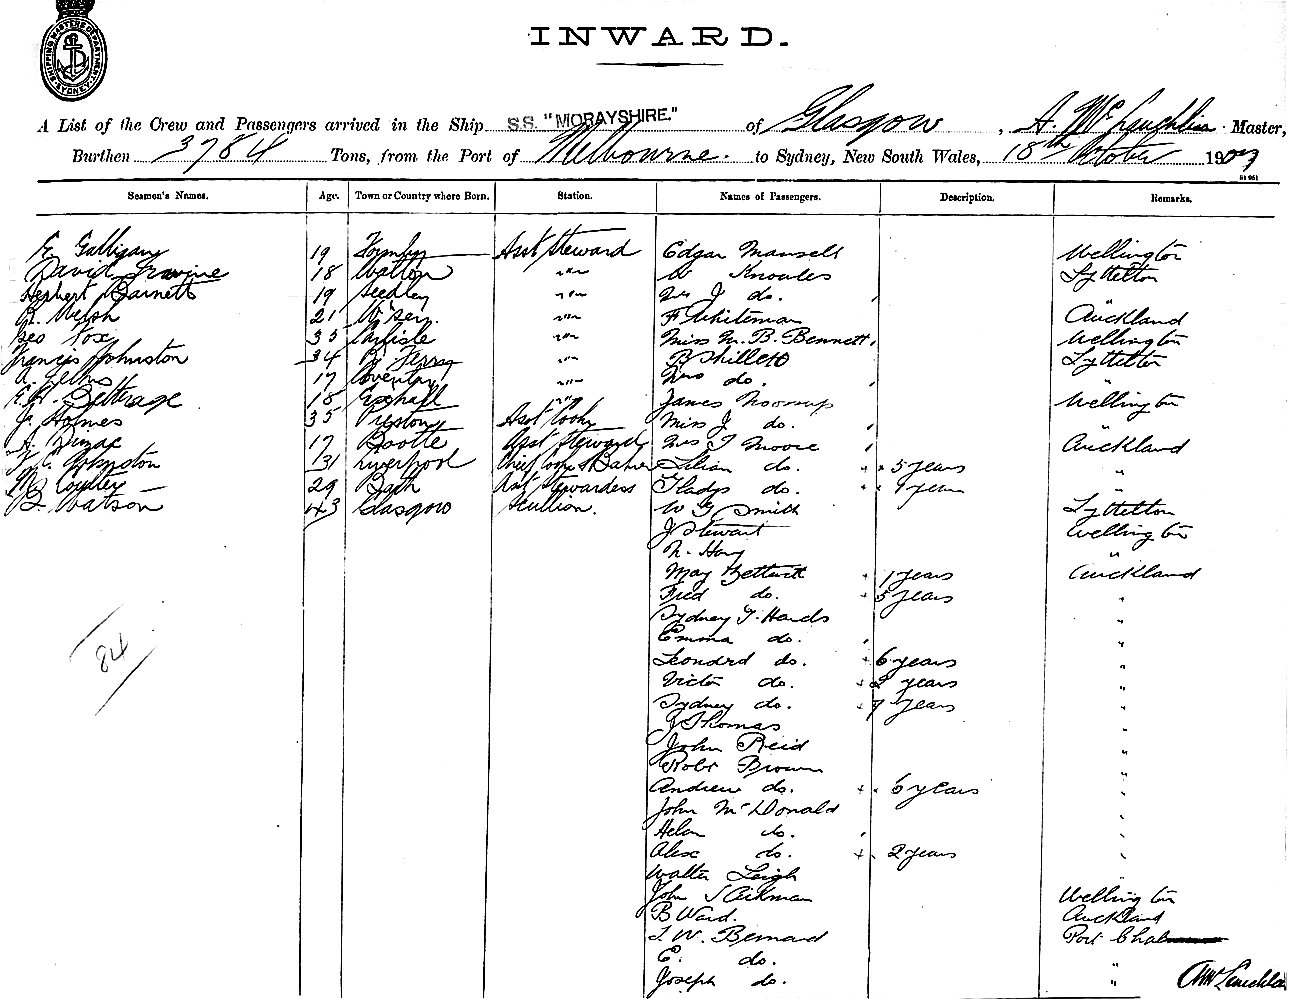 SHIPPING MASTERS DEPARTMENT SYDNEY
INWARD.
A List of the Crew and Passengers arrived in the Ship SS. "MORAYSHIRE." of Glasgow, A. McLauchlin Master,
Burthen 3784 Tons, from the Port of Melbourne. to Sydney, New South Wales, 18th October 1907
Seamen's Names. Age. Town or Country where Born. Station. Names of Passengers. Description. Remarks.
E. Galligan 19 Formby Asst Steward Edgar Mansell Wellington
David Irwine 18 Walton "" W Knowles Lyttelton
Herbert Barnett 19 Seedley "" Mrs J do.
R. Welsh 21 "" F Whiteman Auckland
Geo Fox 35 Carlisle "" Miss M. B. Bennett Wellington
Francis Johnston 34 "" B Lyttelton
A. 17 Coventry "" Mrs do. "
E.H. Betterage 18 Exhall "" James Wellington
J. Holmes 35 Preston Asst Cook Miss J do. "
A. 17 Bootle Asst Steward Mrs T Moore Auckland
Johnston 31 Liverpool Chief Cook & Baker Lilian do. 5 years "
M. 29 Bath Ast Stewardess Gladys do. years "
B. Watson 43 Glasgow Scullion. W G Smith Lyttelton
J Stewart Wellington
N. Hay "
May 1 years Auckland
Fred do. 5 years "
Sydney T. Hards "
Emma do. "
Leonard do. 6 years "
Victor do. years "
Sydney do. years "
J Thomas "
John Reid "
Robt Brown "
Andrew do. 6 years "
John McDonald "
Helen do. "
Alex do. 2 years "
Walter Leigh "
John Aickman Wellington
B Ward. Auckland
T W. Bernard Port Chal
E. do. "
Joseph do. "
84